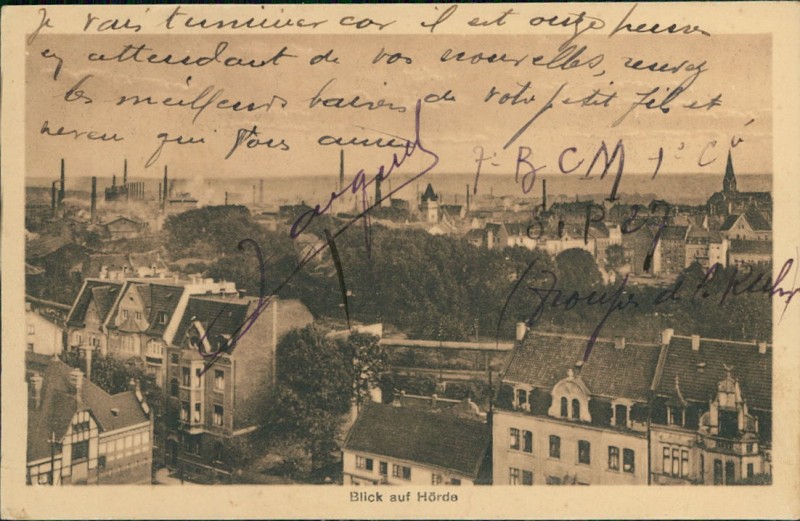 Je vais terminer car il est onze heures
en attendant de vos nouvelles, recevez
les meilleurs baisers de votre petit fils et
neveu qui vous aime
Jacquard
7e BCM 1e Cie
S.P. 27
(Troupes d l. Ruhr
Blick auf Hörde